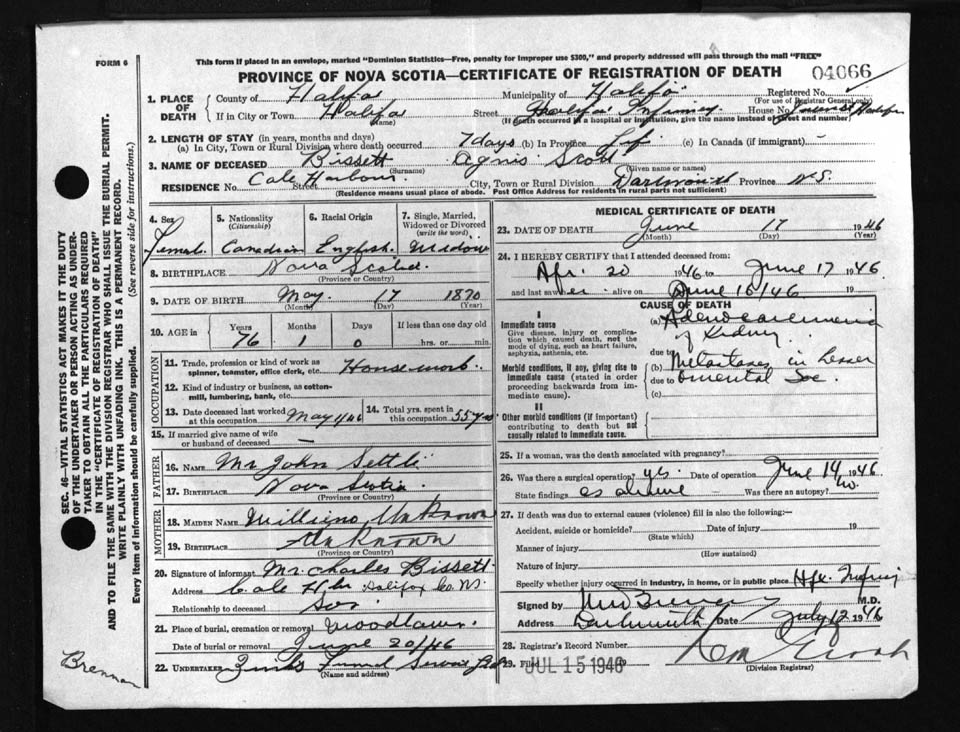 FORM 6
This form if placed in an envelope, marked "Dominion Statistics—Free, penalty for improper use $300," and properly addressed will pass through the mail "FREE"
PROVINCE OF NOVA SCOTIA—CERTIFICATE OF REGISTRATION OF DEATH
04066
1. PLACE OF DEATH
County of Halifax Municipality of Halifax Registered No.
(For use of Registrar General only)
If in City or Town Halifax Street Halifax Infirmary House No.
(Name) (If death occurred in a hospital or institution, give the name instead of street and number)
2. LENGTH OF STAY (in years, months and days)
(a) In City, Town or Rural Division where death occurred 7 days (b) In Province Life (c) In Canada (if immigrant) -
3. NAME OF DECEASED Bissett Agnis Scott
(Surname) (Given name or names)
RESIDENCE No. Cole Harbour Street City, Town or Rural Division Dartmouth Province N.S.
(Residence means usual place of abode. Post Office Address for residents in rural parts not sufficient)
4. Sex Female
5. Nationality (Citizenship) Canadian
6. Racial Origin English
7. Single, Married, Widowed or Divorced (write the word) Widow
8. BIRTHPLACE Nova Scotia
(Province or Country)
9. DATE OF BIRTH May 17 1870
(Month) (Day) (Year)
10. AGE in Years Months Days If less than one day old
76 1 0 hrs. or min.
OCCUPATION
11. Trade, profession or kind of work as spinner, teamster, office clerk, etc. Housework
12. Kind of industry or business, as cotton-mill, lumbering, bank, etc.
13. Date deceased last worked at this occupation May 4/46
14. Total yrs. spent in this occupation 55 yrs
15. If married give name of wife or husband of deceased —
FATHER
16. Name Mr John Settle
17. Birthplace Nova Scotia
(Province or Country)
MOTHER
18. MAIDEN NAME Unknown
19. BIRTHPLACE Unknown
(Province or Country)
20. Signature of informant Mr. Charles Bissett
Address Cole Hbr Halifax Co. NS
Relationship to deceased Son
21. Place of burial, cremation or removal Woodlawn
Date of burial or removal June 20/46
22. UNDERTAKER Funeral Service
(Name and address)
MEDICAL CERTIFICATE OF DEATH
23. DATE OF DEATH June 17 1946
(Month) (Day) (Year)
24. I HEREBY CERTIFY that I attended deceased from:
Apr. 20 1946 to June 17 1946
and last saw her alive on June 16/46 19
CAUSE OF DEATH
I
Immediate cause
Give disease, injury or complication which caused death, not the mode of dying, such as heart failure, asphyxia, asthenia, etc.
(a) Adenocarcinoma of Kidney
due to
Morbid conditions, if any, giving rise to immediate cause (stated in order proceeding backwards from immediate cause).
(b) Metastases in Lesser
due to Omental Sac
(c)
II
Other morbid conditions (if important) contributing to death but not causally related to immediate cause.
25. If a woman, was the death associated with pregnancy?
26. Was there a surgical operation? yes Date of operation June 14 1946
State findings as above Was there an autopsy? no
27. If death was due to external causes (violence) fill in also the following:—
Accident, suicide or homicide? Date of injury 19
(State which)
Manner of injury
(How sustained)
Nature of injury
Specify whether injury occurred in industry, in home, or in public place Hfx. Infirmary
Signed by M.D.
Address Dartmouth Date July 12 1946
28. Registrar's Record Number
29. Filed JUL 15 1946
(Division Registrar)
SEC. 46—VITAL STATISTICS ACT MAKES IT THE DUTY OF THE UNDERTAKER OR PERSON ACTING AS UNDERTAKER TO OBTAIN ALL THE PARTICULARS REQUIRED IN THE "CERTIFICATE OF REGISTRATION OF DEATH" AND TO FILE THE SAME WITH THE DIVISION REGISTRAR WHO SHALL ISSUE THE BURIAL PERMIT.
WRITE PLAINLY WITH UNFADING INK. THIS IS A PERMANENT RECORD.
Every item of information should be carefully supplied. (See reverse side for instructions.)
Brennan